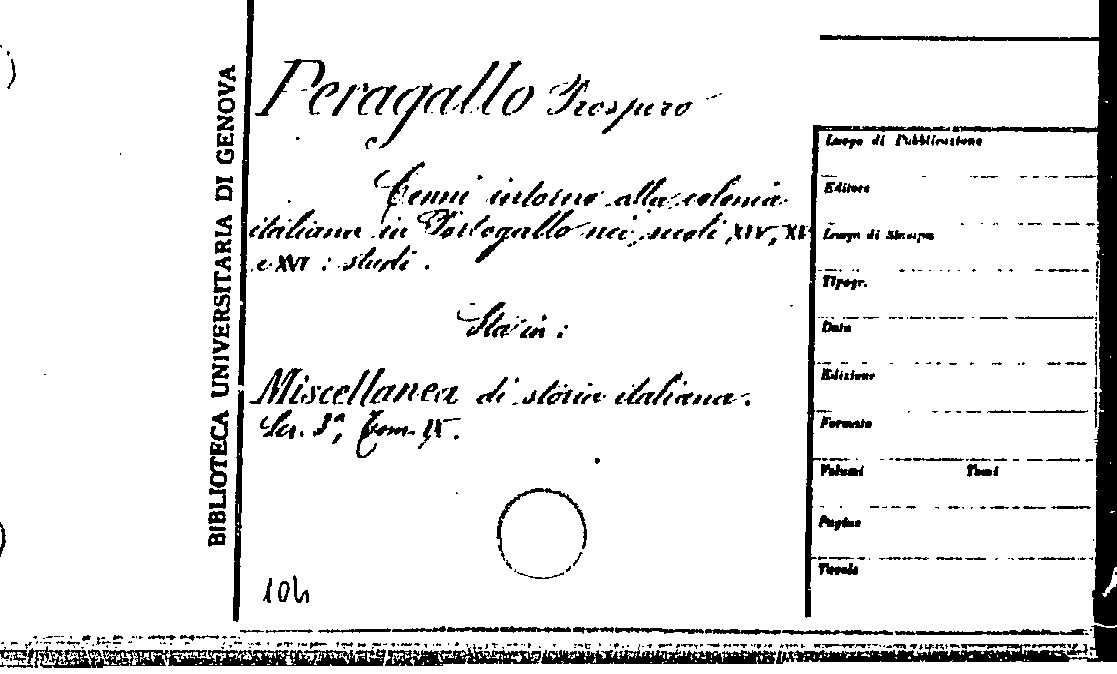 BIBLIOTECA UNIVERSITARIA DI GENOVA
Peragallo Prospero
Cenni intorno alla colonia
italiana in Portogallo nei secoli XIV, XV
e XVI : studi .
Sta in :
Miscellanea di storia italiana.
Ser. 3ª, Tom. IX.
104
Luogo di Pubblicazione
Editore
Luogo di Stampa
Tipogr.
Data
Edizione
Formato
Volumi Tomi
Pagine
Tavole